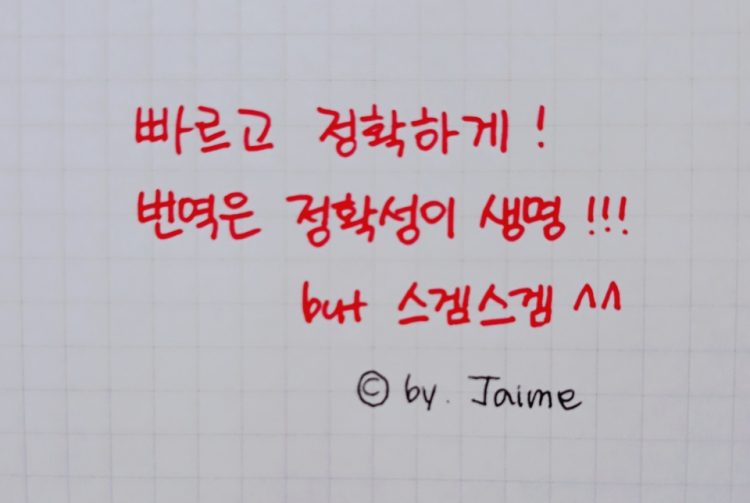 빠르고 정확하게!
번역은 정확성이 생명!!!
but 스겜스겜 ^^
© by. Jaime